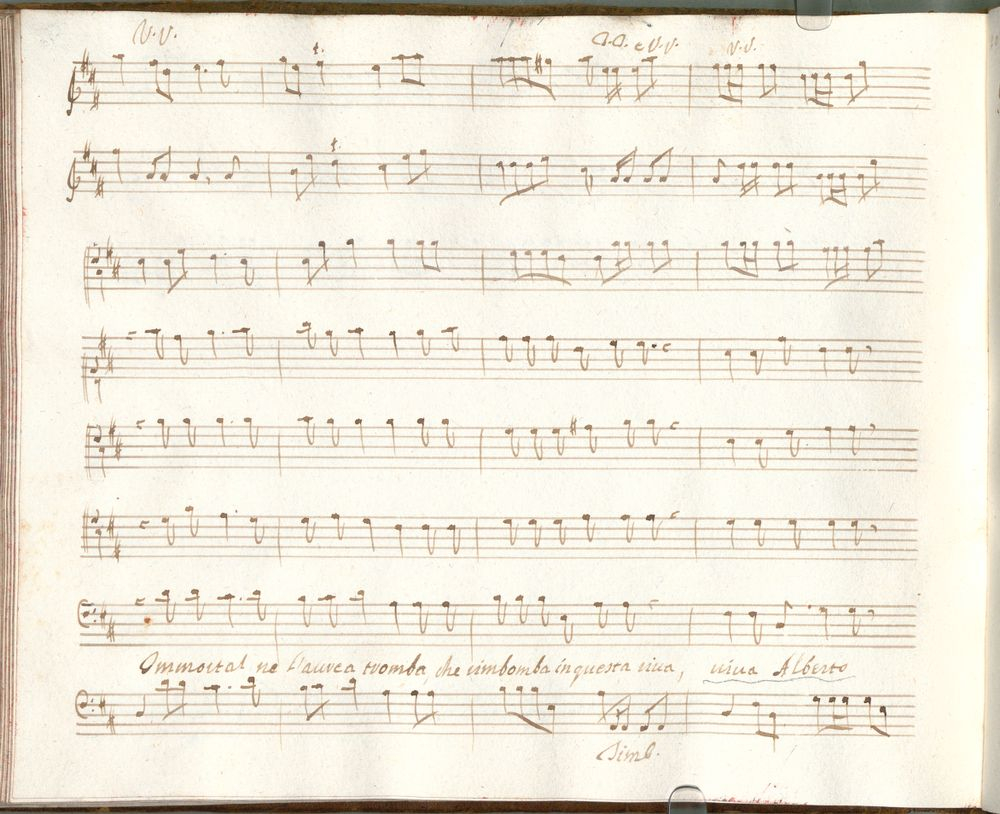 V.V.
e V.V.
V.V.
t.
t.
Immortal ne l'aurea tromba, che rimbomba in questa riva, viva Alberto
Timb.